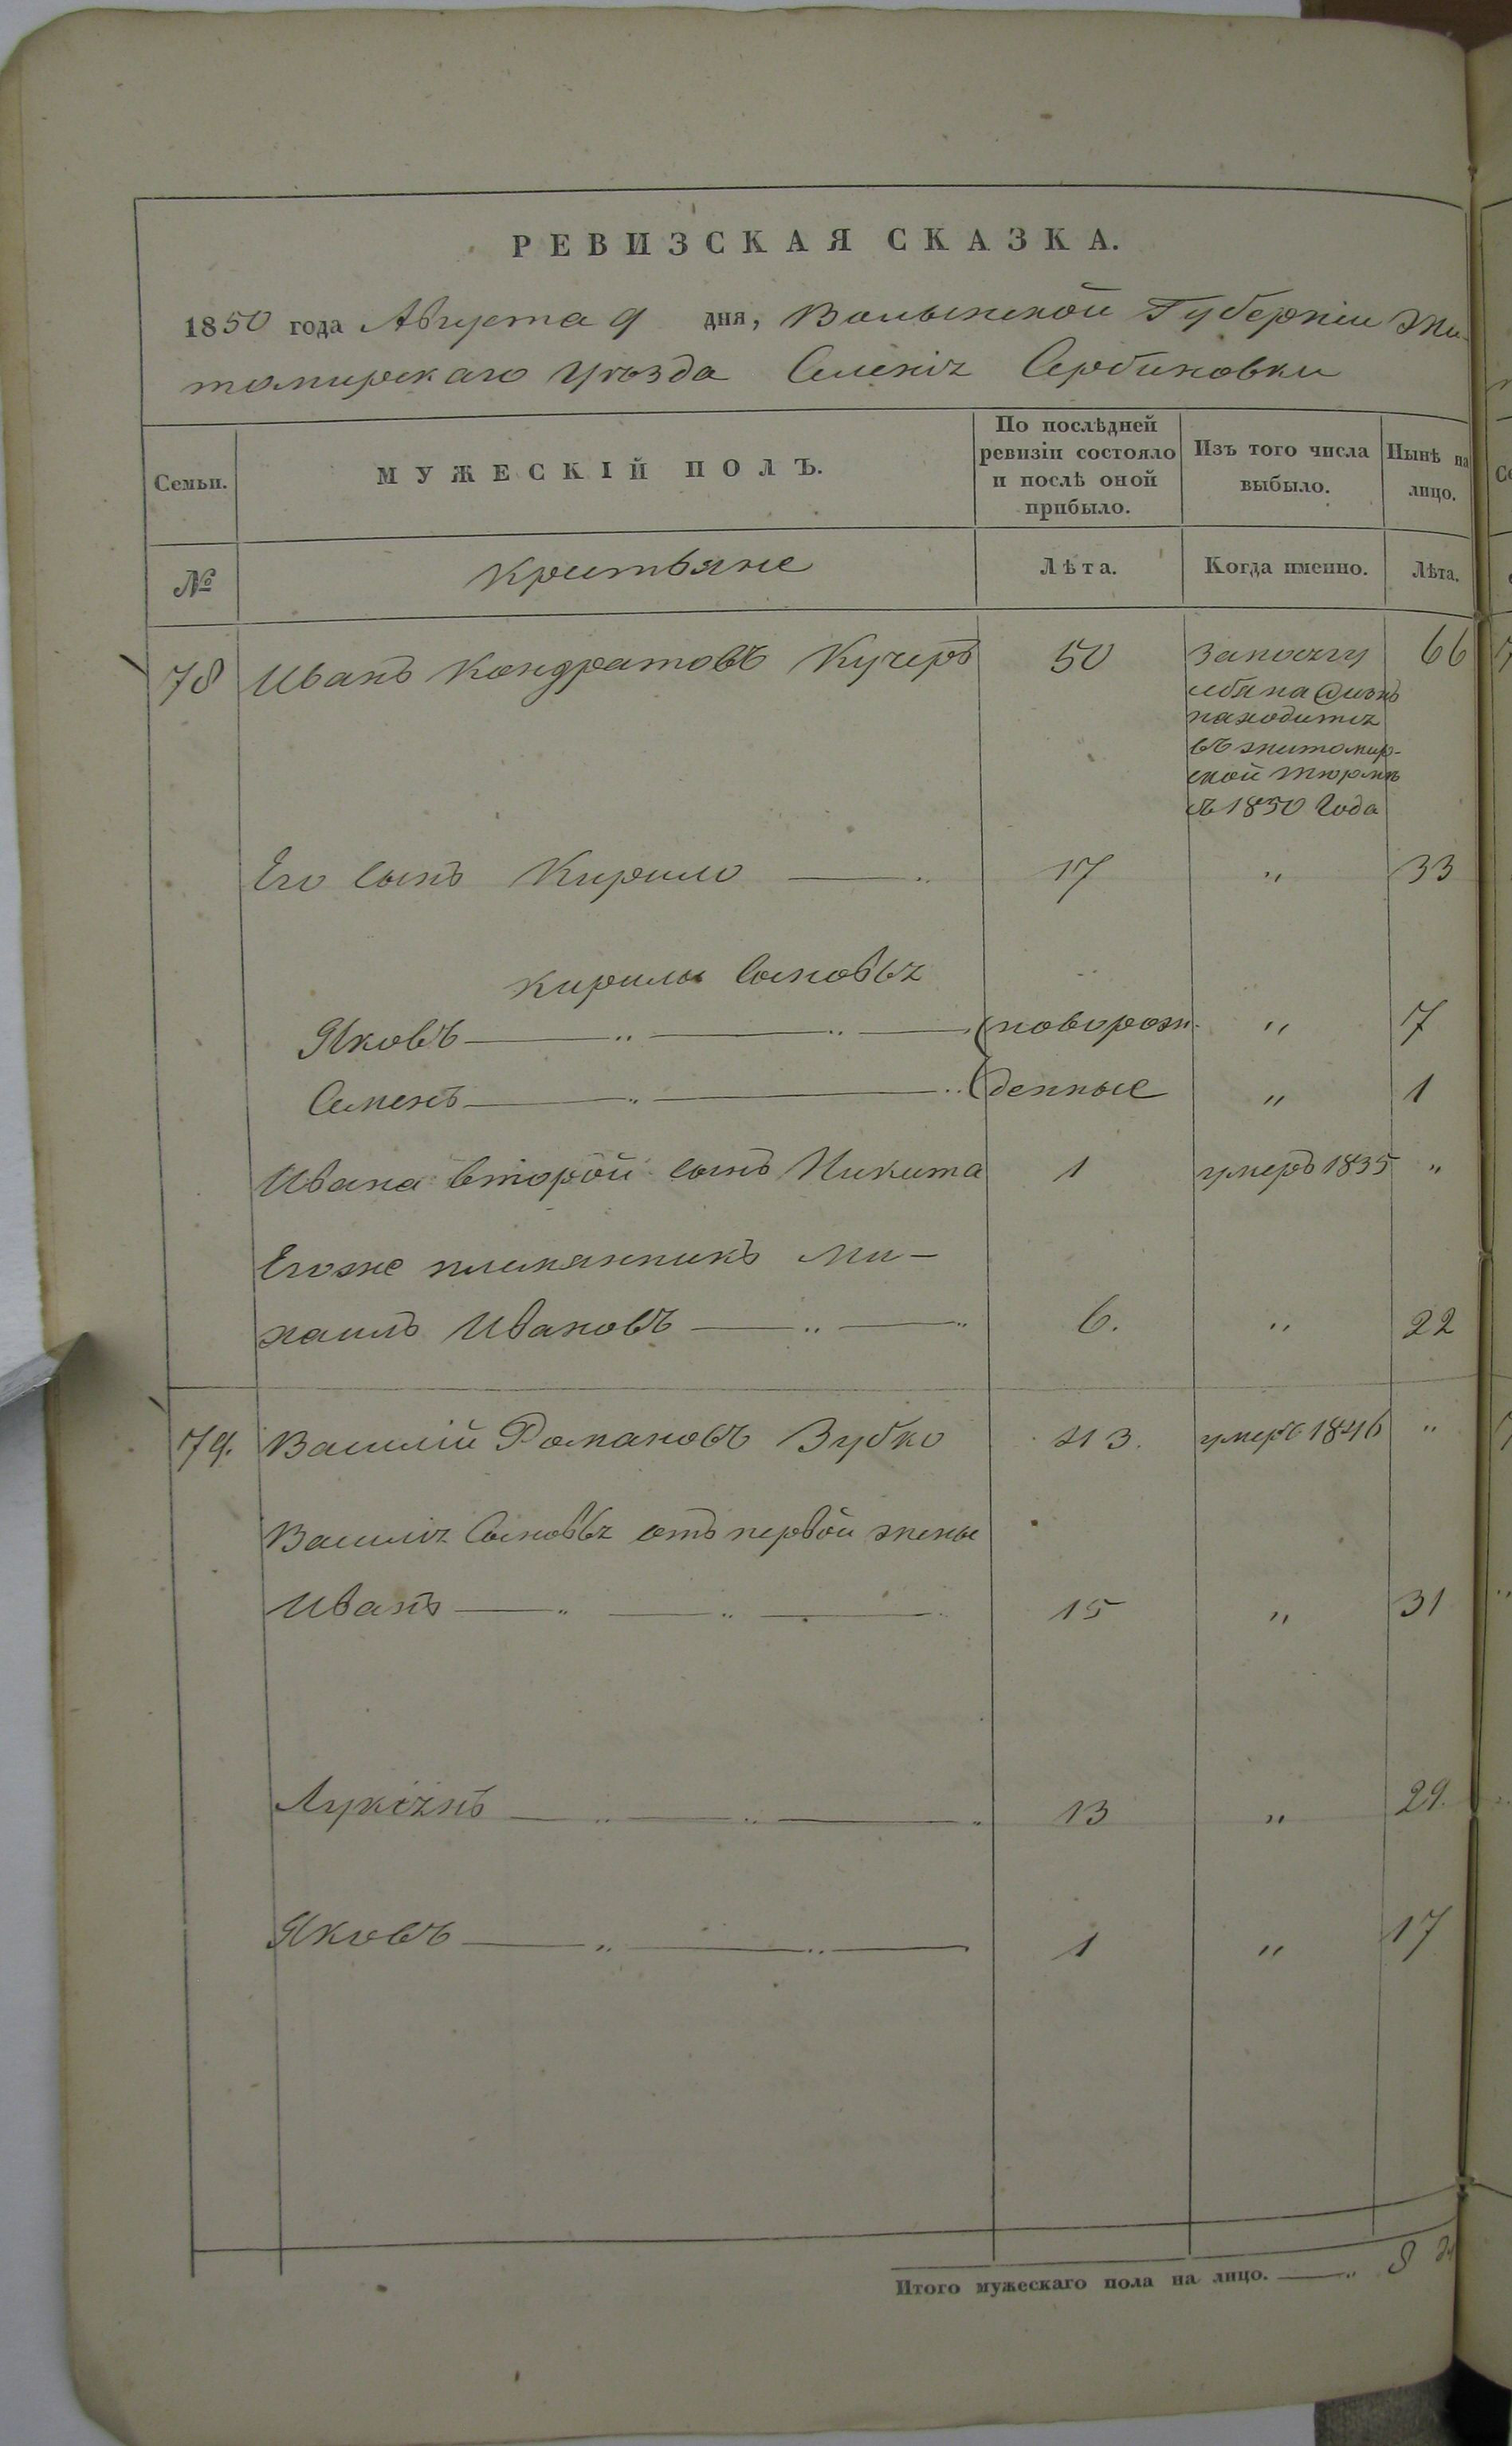 РЕВИЗСКАЯ СКАЗКА.
1850 года Августа 9 дня, Волынской Губерніи Жи-
томирскаго Уѣзда Селенія Сербиновки
Семьи.
МУЖЕСКІЙ ПОЛЪ.
По послѣдней ревизіи состояло и послѣ оной прибыло.
Изъ того числа выбыло.
Нынѣ на лицо.
№
Крестьяне
Лѣта.
Когда именно.
Лѣта.
78 Иванъ Кондратовъ Кучеръ 50 66
находится
въ житомир-
ской тюрмѣ
съ 1850 Года
Его сынъ Кирило —— „ 17 „ 33
Кирилы Сыновья
Яковъ —— „ —— „ —— новорож- „ 7
Семенъ —— „ —— „ денные „ 1
Ивана второй сынъ Никита 1 умеръ 1835 „
Егоже племянникъ Ми-
хаилъ Ивановъ —— „ —— „ 6. „ 22
79. Василій Романовъ Зубко 43. умеръ 1846 „
Василія Сыновья отъ первой жены
Иванъ —— „ —— „ —— „ 15 „ 31
Лукіянъ —— „ —— „ —— „ 13 „ 29.
Яковъ —— „ —— „ —— 1 „ 17
Итого мужескаго пола на лицо. —— „ 8